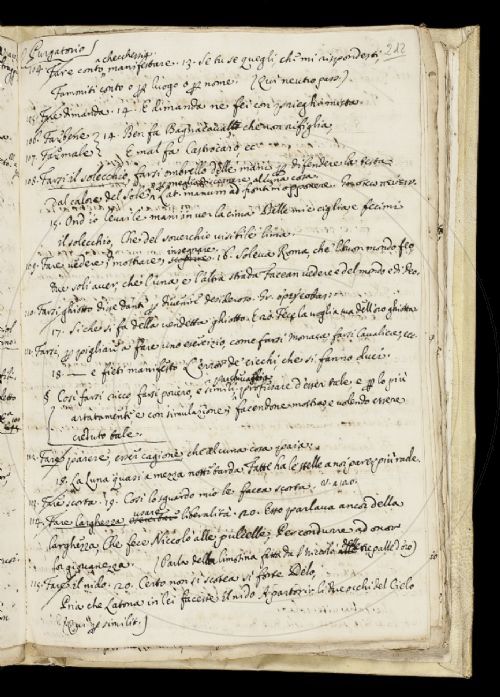 Purgatorio 212
a checchessia
104. Fare conto, manifestare. 13. Se tu se quegli, che mi rispondesti,
Fammiti conto o per luogo o per nome. [Qui neutro pass.]
105. Fare dimanda. 14. E dimanda ne fei con prieghi mista
106. Far bene } 14. Ben fa Bagnacavallo che non rifiglia,
107. Far male } E mal fa Castrocaro ec
108. Farsi il solecchio, farsi ombrello delle mani per difendere la testa
Dal calore del Sole, alcuna cosa. Lat. manum ad frontem opponere
15. Ond' io levai le mani inver la cima Delle mie ciglia e fecimi
il solecchio, Che del soverchio visibile lima.
insegnare
109. Fare vedere, mostrare, 16. Soleva Roma, che 'l buon mondo feo
Due soli aver, che l'una e l'altra strada Facean vedere e del mondo e di Deo.
110. Farsi ghiotto divenire desideroso.
17. Si che si fa della vendetta ghiotto. E 20. Fece la voglia sua dell'oro ghiotta
111. Farsi, per pigliare a fare uno esercizio, come farsi Monaca, farsi Cavaliere, ec.
18. E fieti manifesto L'error de' ciechi che si fanno duci
§ Così farsi cieco farsi povero, e simili, professare d'esser tale, e per lo più
artatamente e con simulazione, facendone mostra e volendo essere
creduto tale.
112. Fare parere, esser cagione, che alcuna cosa paia.
18. La Luna quasi a mezza notte tarda Fatte ha le stelle a noi parer più rade
113. Fare scorta. 19. Così lo sguardo mio le facea scorta.
usare
114. Fare larghezza, liberalità. 20. Esso parlava ancor della
larghezza Che fece Niccolò alle pulcelle, Per condurre ad onor
lor giovanezza. [Parla della limosina fatta da S. Niccolò delle palle d'oro]
115. Fare il nido. 20. Certo non si scotea sì forte Delo,
Pria che Latona in lei facesse il nido A partorir li due occhi del Cielo
[Qui per similit.]